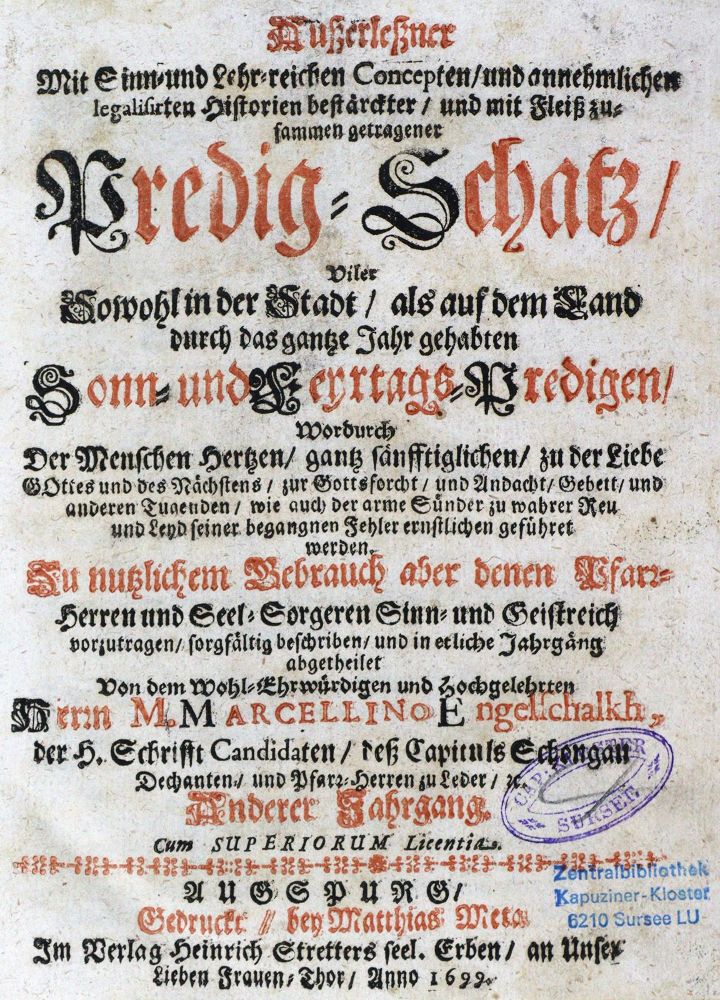 Außerleßner
Mit Sinn- und Lehr-reichen Concepten/ und annehmlichen
legalisirten Historien bestärckter/ und mit Fleiß zu-
sammen getragener
Predig-Schatz/
Viler
Sowohl in der Stadt/ als auf dem Land
durch das gantze Jahr gehabten
Sonn- und Feyrtags-Predigen/
Wordurch
Der Menschen Hertzen/ gantz sänfftiglichen/ zu der Liebe
GOttes und des Nächstens/ zur Gottsforcht/ und Andacht/ Gebett/ und
anderen Tugenden/ wie auch der arme Sünder zu wahrer Reu
und Leyd seiner begangnen Fehler ernstlichen geführet
werden.
Zu nutzlichem Gebrauch aber denen Pfarr-
Herren und Seel-Sorgeren Sinn- und Geistreich
vorzutragen/ sorgfältig beschriben/ und in etliche Jahrgäng
abgetheilet
Von dem Wohl-Ehrwürdigen und Hochgelehrten
Herrn M. MARCELLINO Engellschalkh,
der H. Schrifft Candidaten/ deß Capituls Schongau
Dechanten/ und Pfarr-Herren zu Leder/ ꝛc.
Anderer Jahrgang.
Cum SUPERIORUM Licentia.
CAP. KLOSTER
SURSEE
Zentralbibliothek
Kapuziner-Kloster
6210 Sursee LU
AUGSPURG/
Gedruckt // bey Matthias Meta
Im Verlag Heinrich Stretters seel. Erben/ an Unser
Lieben Frauen-Thor/ Anno 1699.